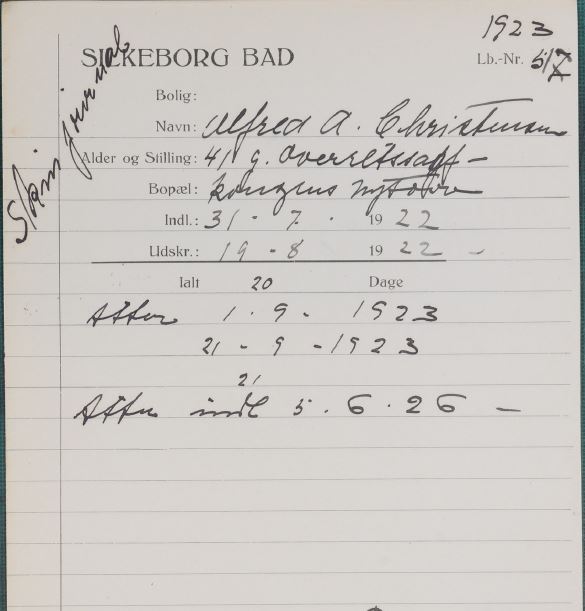 1923
SILKEBORG BAD
Lb.-Nr. 517
Skin journal
Bolig:
Navn: Alfred A. Christensen
Alder og Stilling: 41 g. Overretssagf-
Bopæl: Kongens Nytorv
Indl.: 31 - 7 - 1922
Udskr.: 19 - 8 1922 -
Ialt 20 Dage
Atter 1 . 9 - 1923
21 - 9 - 1923
21
Atter indl 5 . 6 . 26 -